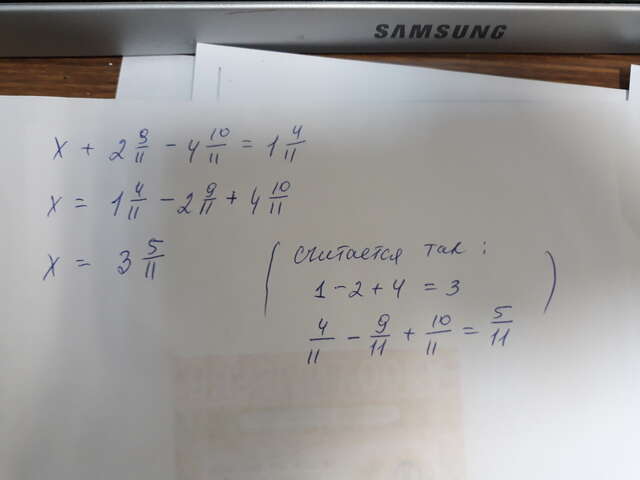 x + 2 9/11 - 4 10/11 = 1 4/11
x = 1 4/11 - 2 9/11 + 4 10/11
x = 3 5/11
( считается так :
1 - 2 + 4 = 3
4/11 - 9/11 + 10/11 = 5/11 )
SAMSUNG